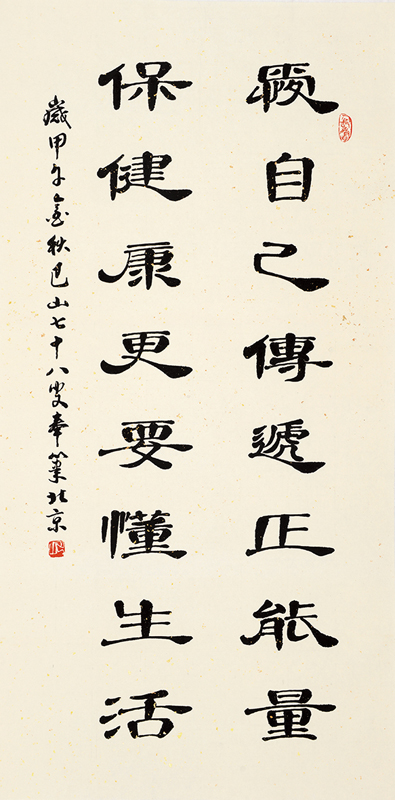 愛自己傳遞正能量
保健康更要懂生活
歲甲午金秋巴山七十八叟奉筆北京